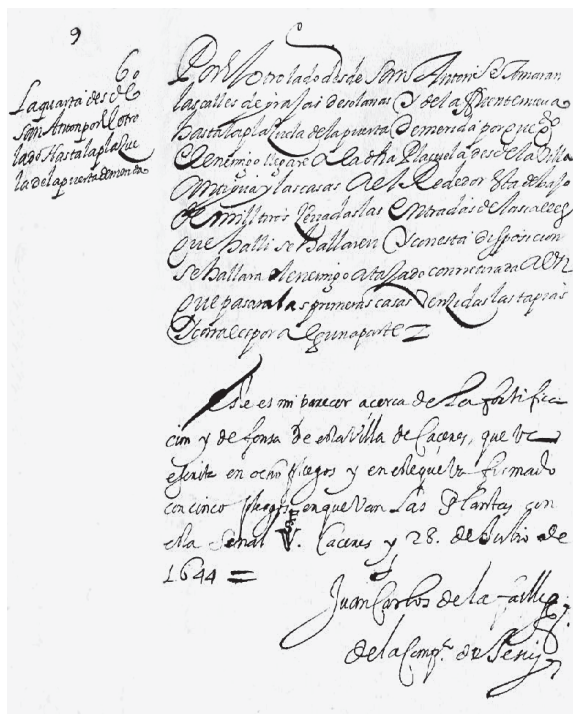 9
6o
La quarta desde
San Anton por el otro
lado Hasta la plaçue
la de la puerta de merida
Por el otro lado desde San Anton Se
las calles de y de la fuente nueva
hasta la plaçuela de la puerta de merida porque
el enemigo llegare a la dha Plaçuela desde la Villa
Antigua y las casas del Rededor esta debajo
de mill tiros las entradas de las calles
que halli se hallaren y con esta disposicion
se hallara el enemigo atajado con retirada aun
que pasara las primeras casas las tapias
por alguna parte
Este es mi parecer acerca de La fortifica
cion y defensa de esta Villa de Caceres, que va
escrito en ocho pliegos y en este que va firmado
con cinco pliegos en que van Las Plantas con
esta Señal V. Caceres y 28. de Julio de
1644
Juan Carlos de la faille
de la Comp.ª de